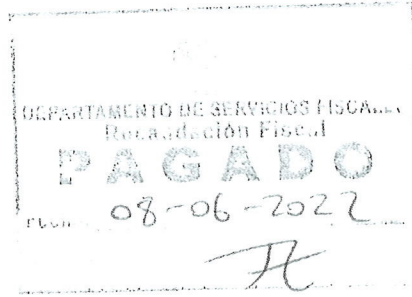 DEPARTAMENTO DE SERVICIOS FISCALES
Recaudación Fiscal
PAGADO
08-06-2022